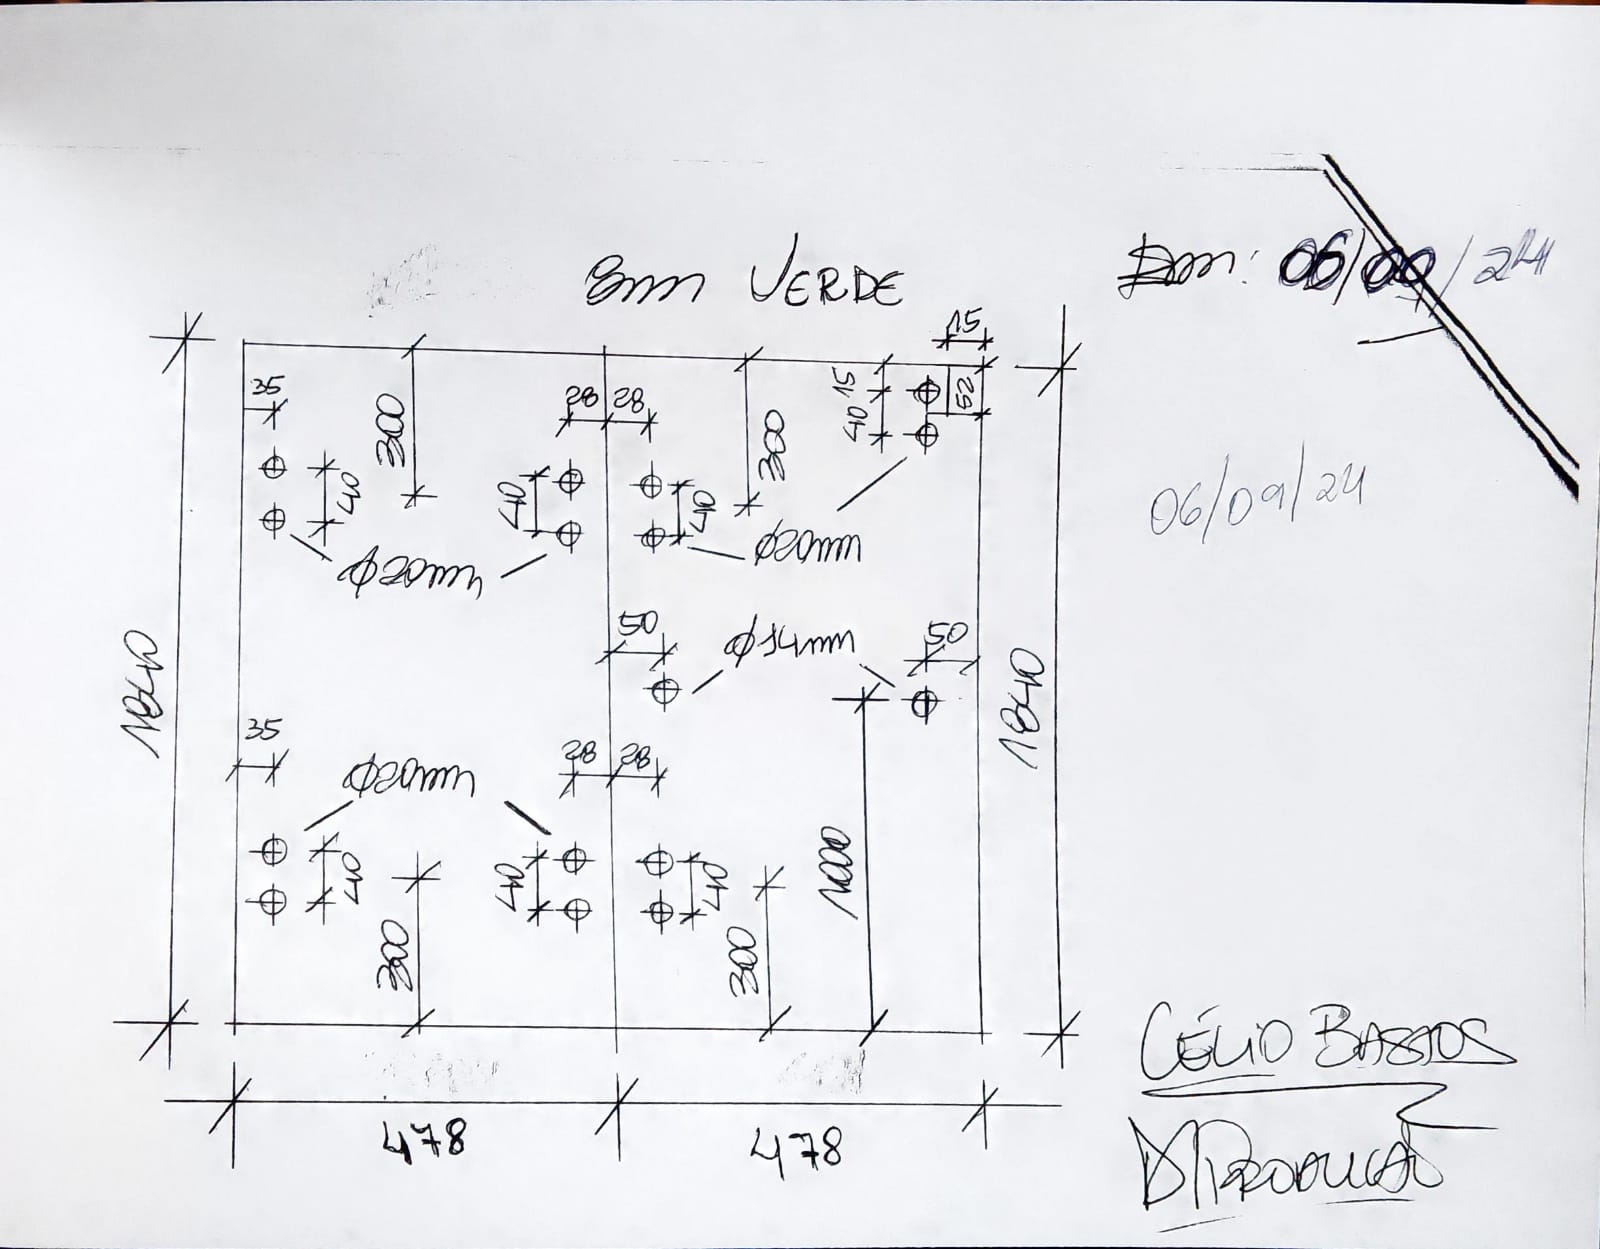 8mm VERDE
06/09/24
15
35
28 28
15
52
300
300
40
40
40
40
φ20mm
φ20mm
06/09/24
50
φ14mm
50
1840
1840
35
φ20mm
28 28
40
40
40
1000
300
300
CÉLIO BASTOS
478
478